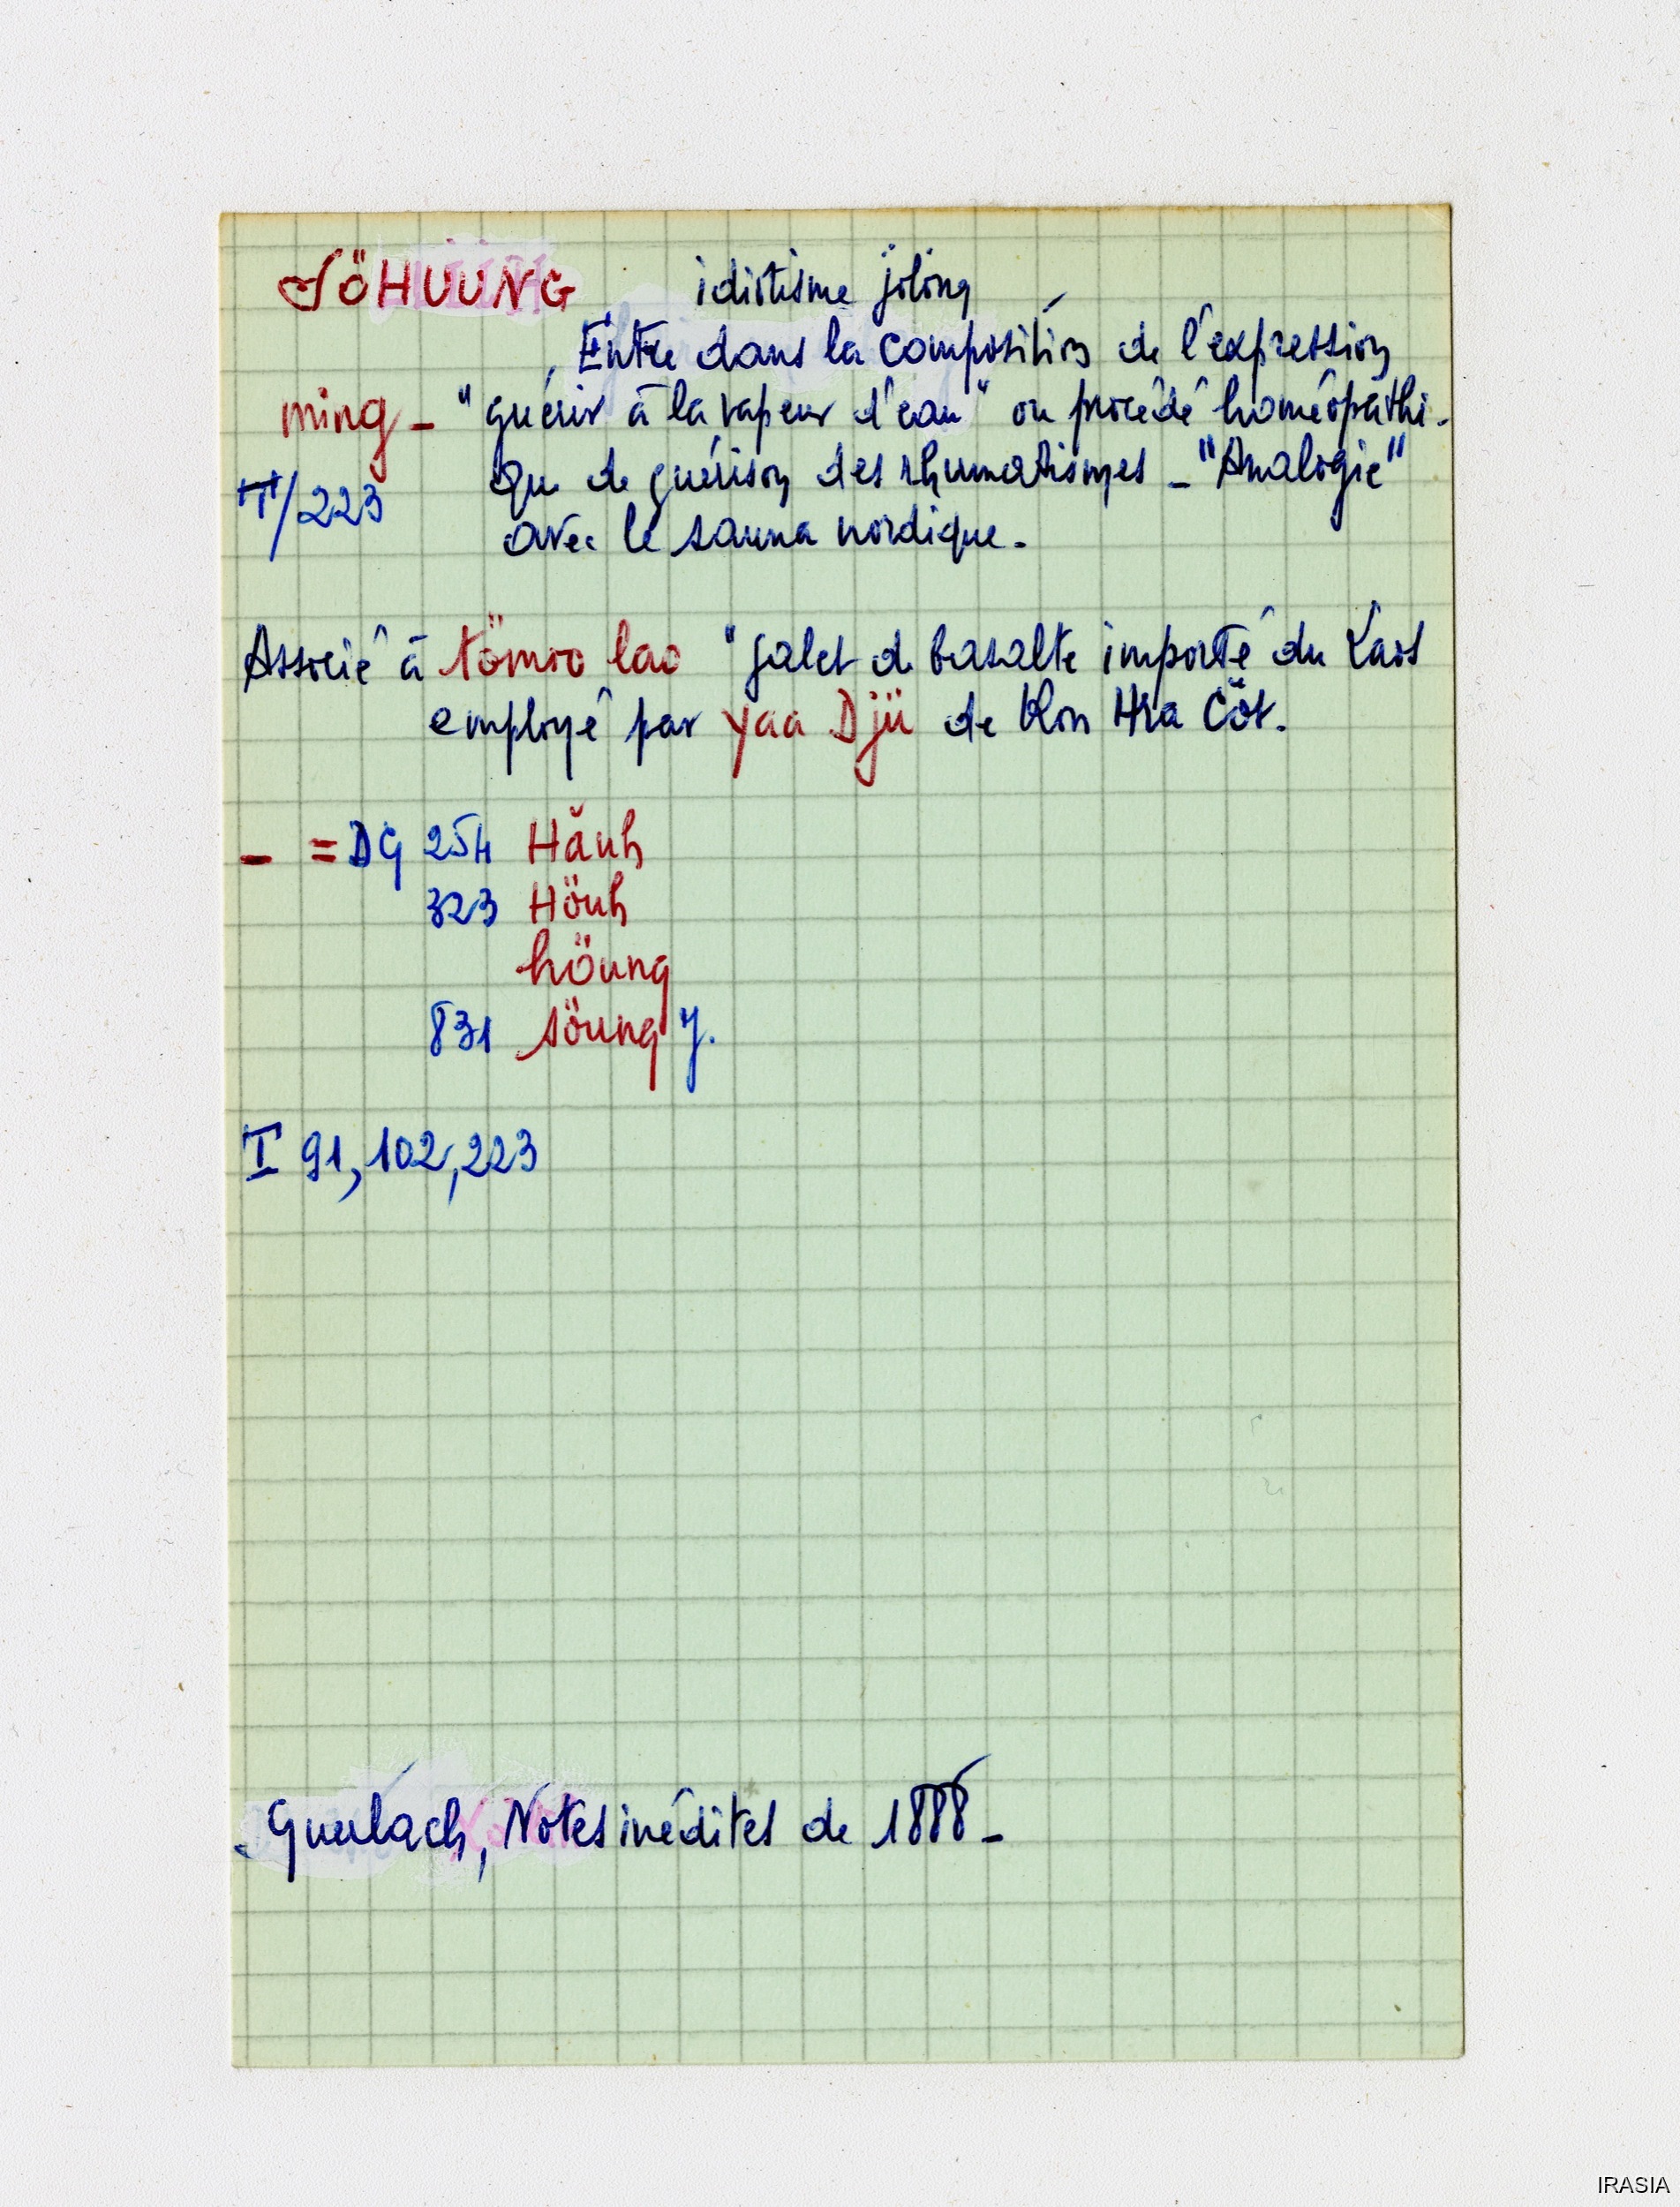 SÖHUUNG idiotisme jölöng
Entre dans la composition de l'expression
ming _ "guérir à la vapeur d'eau" ou procédé homéopathi-
que de guérison des rhumatismes _ "Analogie"
II/223
avec le sauna nordique.
Associé à tömoo lao "galet de basalte importé du Laos
employé par yaa Djü de Kon Hra Cŏt.
_ = DG 254 Hănh
323 Hönh
höung
831 söung J.
I 91, 102, 223
. Guerlach, Notes inédites de 1888 _
IRASIA